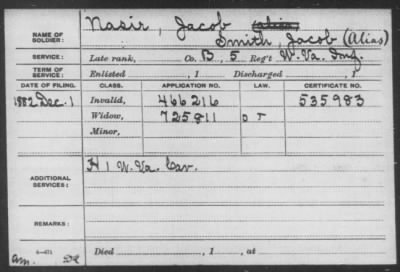 Nasir, Jacob alias
NAME OF SOLDIER: Smith, Jacob (Alias)
SERVICE: Late rank, Co. B, 5 Reg't W. Va. Inf.
TERM OF SERVICE: Enlisted , 1 Discharged , 1
DATE OF FILING. CLASS. APPLICATION NO. LAW. CERTIFICATE NO.
1882 Dec. 1 Invalid, 466216 535983
Widow, 725811
Minor,
ADDITIONAL SERVICES: H 1 W. Va. Cav.
REMARKS:
Died , 1 , at